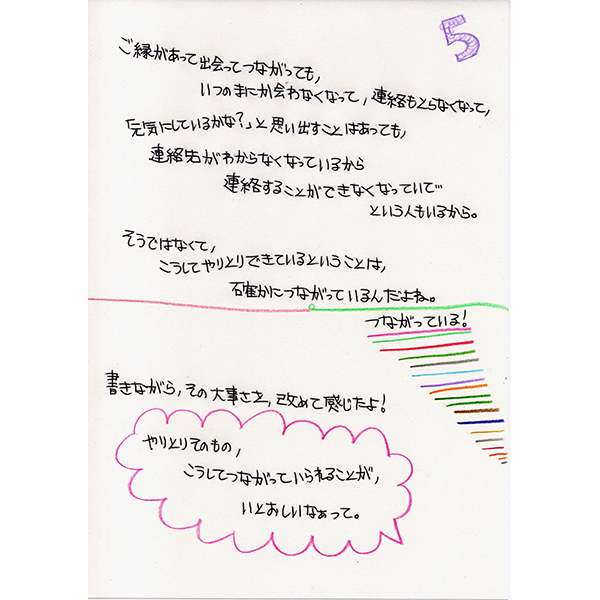 5
ご縁があって出会ってつながっても,
いつのまにか会わなくなって,連絡もとらなくなって,
「元気にしているかな?」と思い出すことはあっても,
連絡先がわからなくなっているから
連絡することができなくなっていて…
という人もいるから。
そうではなくて,
こうしてやりとりできているということは,
確かにつながっているんだよね。
つながっている!
書きながら,その大事さを,改めて感じたよ!
やりとりそのもの,
こうしてつながっていられることが,
いとおしいなぁって。